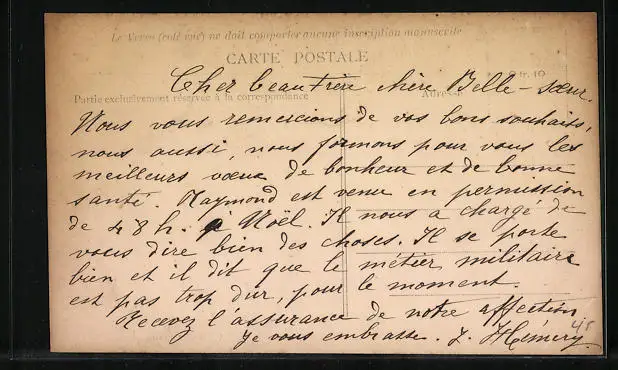 Le Verso (côté vue) ne doit comporter aucune inscription manuscrite
CARTE POSTALE
fr. 10
Cher beau Frère chère Belle-sœur.
Partie exclusivement réservée à la correspondance
Adresse
Nous vous remercions de vos bons souhaits,
nous aussi, nous formons pour vous les
meilleurs vœux de bonheur et de bonne
santé. Raymond est venu en permission
de 48 h. à Noël. Il nous a chargé de
vous dire bien des choses. Il se porte
bien et il dit que le métier militaire
est pas trop dur, pour le moment.
Recevez l'assurance de notre affection.
Je vous embrasse. J. Hémery.